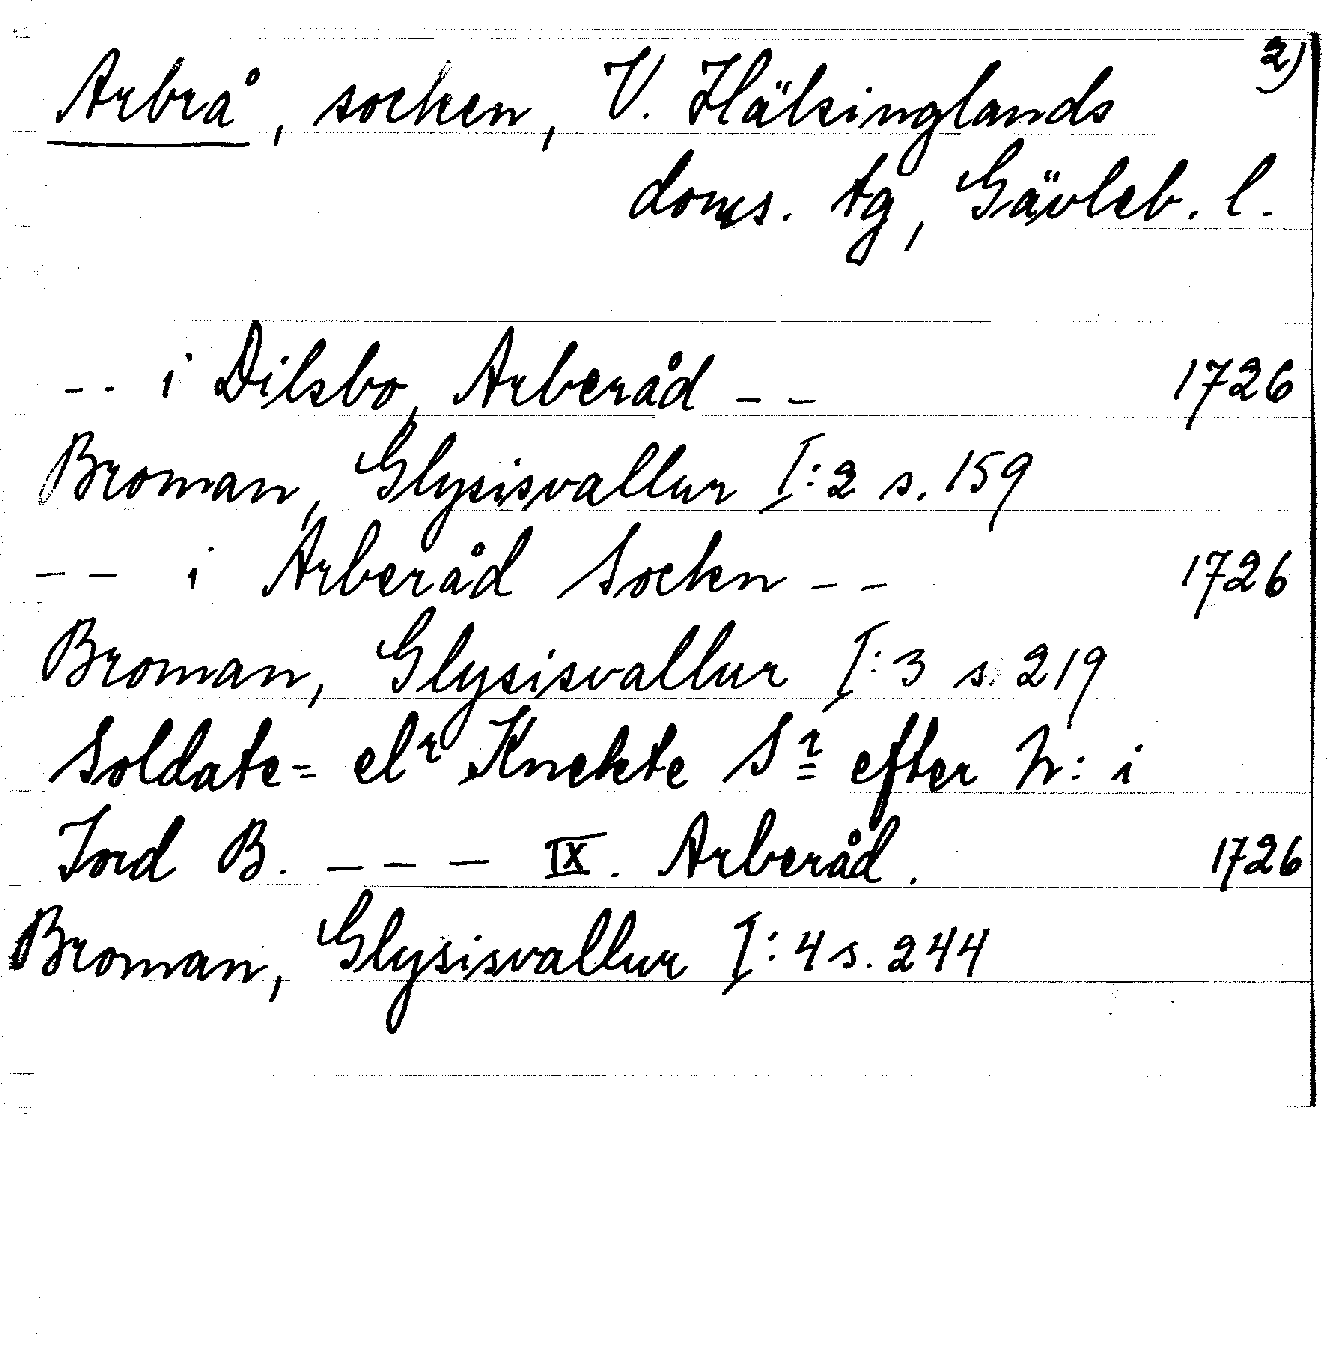 2)
Arbrå, socken, V. Hälsinglands
doms. tg, Gävleb. l.
-- i Dilsbo, Arberåd -- 1726
Broman, Glysisvallur I:2 s. 159
-- i Arberåd Sockn -- 1726
Broman, Glysisvallur I:3 s. 219
Soldate= elr Knekte Sr efter h: i
Jord B. --- IX. Arberåd. 1726
Broman, Glysisvallur I:4 s. 244